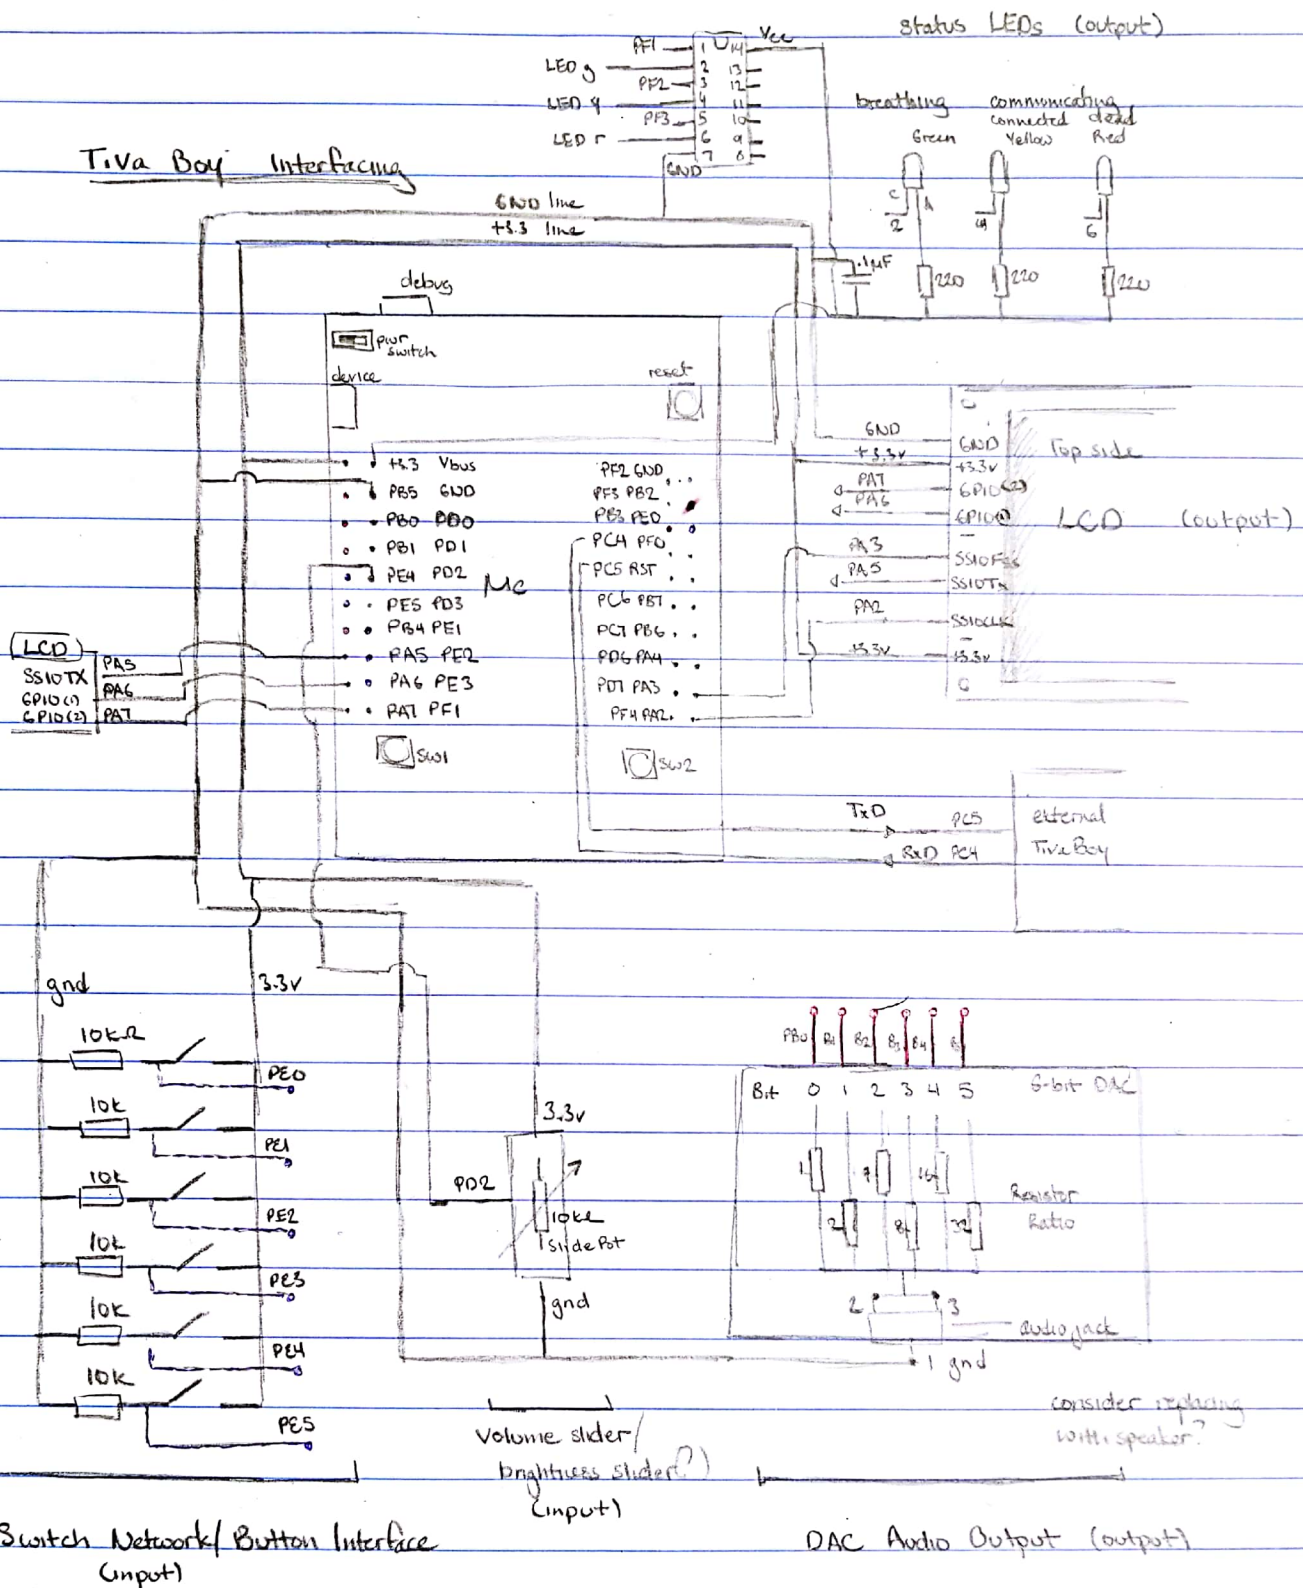 Status LEDs (output)
PF1 1 U 14 Vcc
LED g 2 13
PF2 3 12
LED y 4 11
PF3 5 10
LED r 6 9
7 8
GND
breathing communicating
connected dead
Green Yellow Red
C A
2 4 6
220 220 220
.1µF
Tiva Boy Interfacing
GND line
+3.3 line
debug
pwr
switch
device
reset
+3.3 Vbus
PB5 GND
PB0 PD0
PB1 PD1
PE4 PD2
PE5 PD3
PB4 PE1
PA5 PE2
PA6 PE3
PA7 PF1
Mc
PF2 GND
PF3 PB2
PB3 PE0
PC4 PF0
PC5 RST
PC6 PB7
PC7 PB6
PD6 PA4
PD7 PA3
PF4 PA2
SW1
SW2
GND GND
+3.3v +3.3v
PA7 GPIO(2)
PA6 GPIO(1)
PA3 SSIOFSS
PA5 SSIOTX
PA2 SSIOCLK
+3.3v +3.3v
Top side
LCD (output)
LCD
SSIOTX PA5
GPIO(1) PA6
GPIO(2) PA7
TxD PC5
RxD PC4
external
TivaBoy
gnd 3.3v
10kΩ PE0
10k PE1
10k PE2
10k PE3
10k PE4
10k PE5
Switch Network/Button Interface
(input)
3.3v
PD2
10kΩ
Slide Pot
gnd
Volume slider/
brightness slider(?)
(input)
PB0 B1 B2 B3 B4
Bit 0 1 2 3 4 5 6-bit DAC
1 2 7 8 16 32
Resistor
Ratio
2 3
audio jack
1 gnd
consider replacing
with speaker?
DAC Audio Output (output)